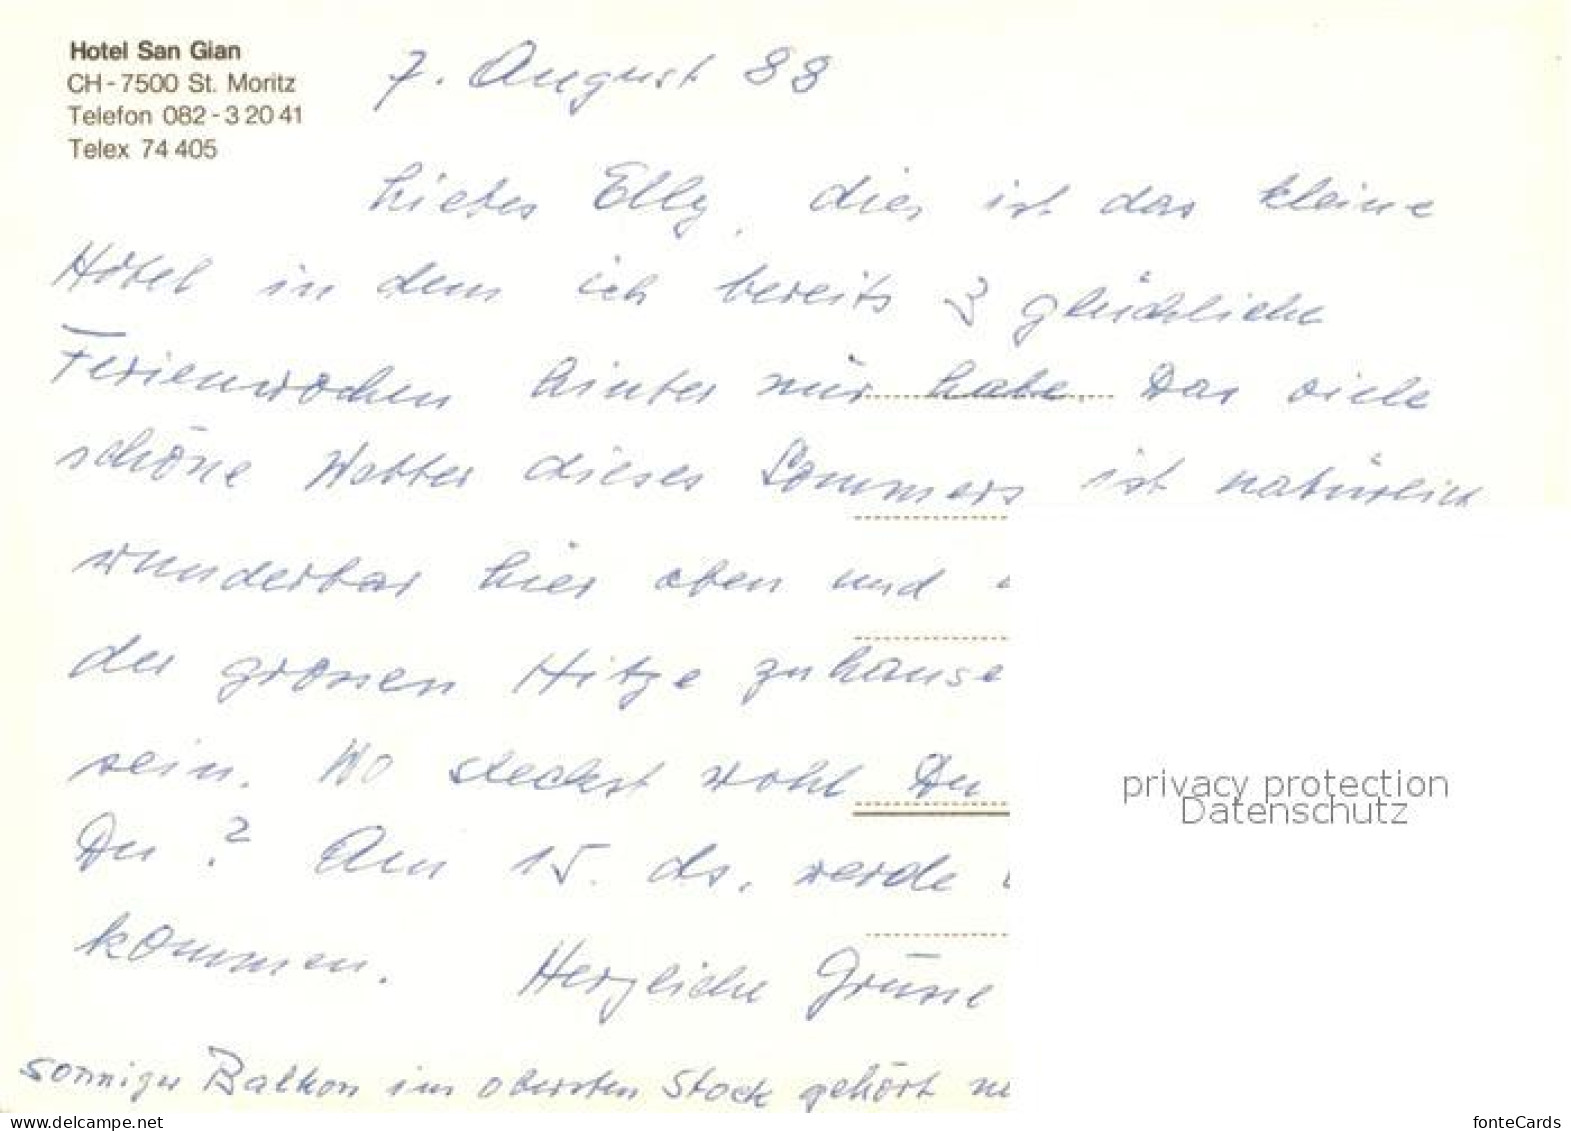 Hotel San Gian
CH-7500 St. Moritz
Telefon 082-3 20 41
Telex 74 405
7. August 88
Liebes Elly, dies ist das kleine
Hotel in dem ich bereits 3 glückliche
Ferienwochen hinter mir habe. Das viele
schöne Wetter dieses Sommers ist natürlich
wunderbar hier oben und
der grossen Hitze zuhause
sein. Wo steckst wohl Du
Du? Am 15. ds. werde
kommen. Herzliche Grüsse
sonniger Balkon im obersten Stock gehört
privacy protection
Datenschutz
www.delcampe.net
fonteCards